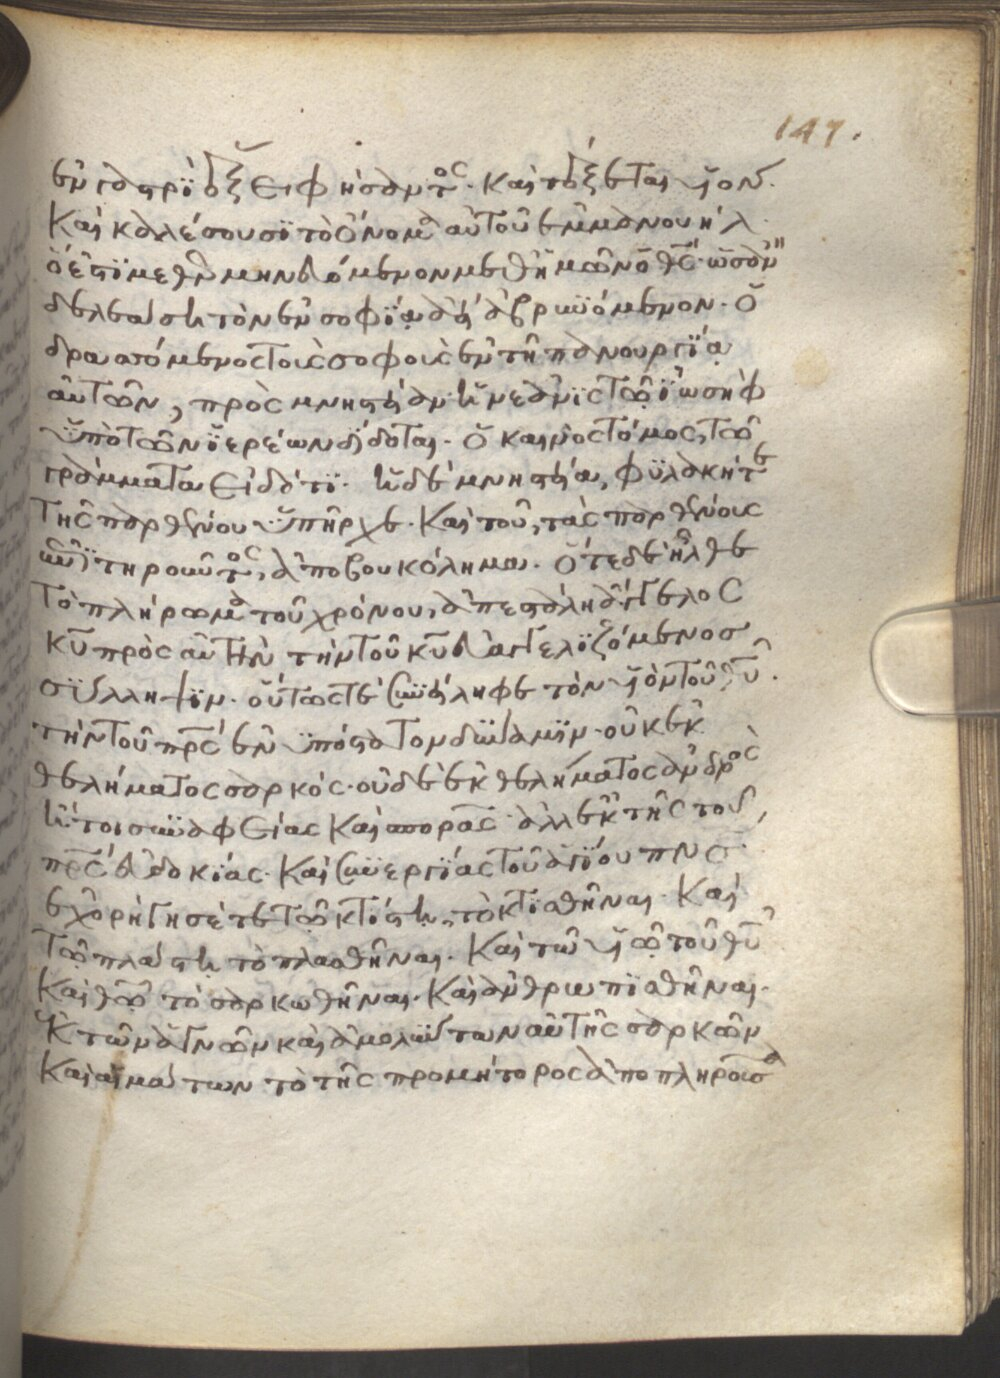 147.
ἐν γαστρὶ ἕξει φήσαντος. καὶ τέξεται υἱόν.
καὶ καλέσουσι τὸ ὄνομα αὐτοῦ ἐμμανουήλ
ὅ ἐστι μεθερμηνευόμενον μεθ ἡμῶν ὁ θς. ὡς ἂν
δελεάσῃ τὸν ἐν σοφίᾳ ἀβρυνόμενον. ὁ
δρασσόμενος τοὺς σοφοὺς ἐν τῇ πανουργίᾳ
αὐτῶν, πρὸς μνηστείαν ἡ νεᾶνις τῷ ἰωσὴφ
ὑπὸ τῶν ἱερέων δίδοται. ὁ καινὸς τόμος, τῷ
γράμματα εἰδότι. ἡ δὲ μνηστεία, φυλακή τε
τῆς παρθένου ὑπῆρχε. καὶ τοῦ, τὰς παρθένους
ἐπιτηροῦντος, ἀποβουκόλημα. ὅτε δὲ ἦλθε
τὸ πλήρωμα τοῦ χρόνου, ἀπεστάλη ἄγγελος
κυ πρὸς αὐτὴν τὴν τοῦ κυ εὐαγγελιζόμενος,
σύλληψιν. οὕτως τε συνείληφε τὸν υἱὸν τοῦ θυ.
τὴν τοῦ πρς ἐνυπόστατον δύναμιν. οὐκ ἐκ
θελήματος σαρκός. οὐδὲ ἐκ θελήματος ἀνδρὸς
ἤτοι συναφείας καὶ σπορᾶς. ἀλλ ἐκ τῆς τοῦ,
πρς εὐδοκίας. καὶ συνεργίας τοῦ ἁγίου πνς.
ἐχορήγησέ τε τῷ κτίστῃ, τὸ κτισθῆναι. καὶ
τῷ πλάστῃ τὸ πλασθῆναι. καὶ τῷ υἱῷ τοῦ θυ
καὶ θῷ τὸ σαρκωθῆναι. καὶ ἀνθρωπισθῆναι.
ἐκ τῶν ἁγνῶν καὶ ἀμολύντων αὐτῆς σαρκῶν
καὶ αἱμάτων τὸ τῆς προμήτορος ἀποπληροῦσα